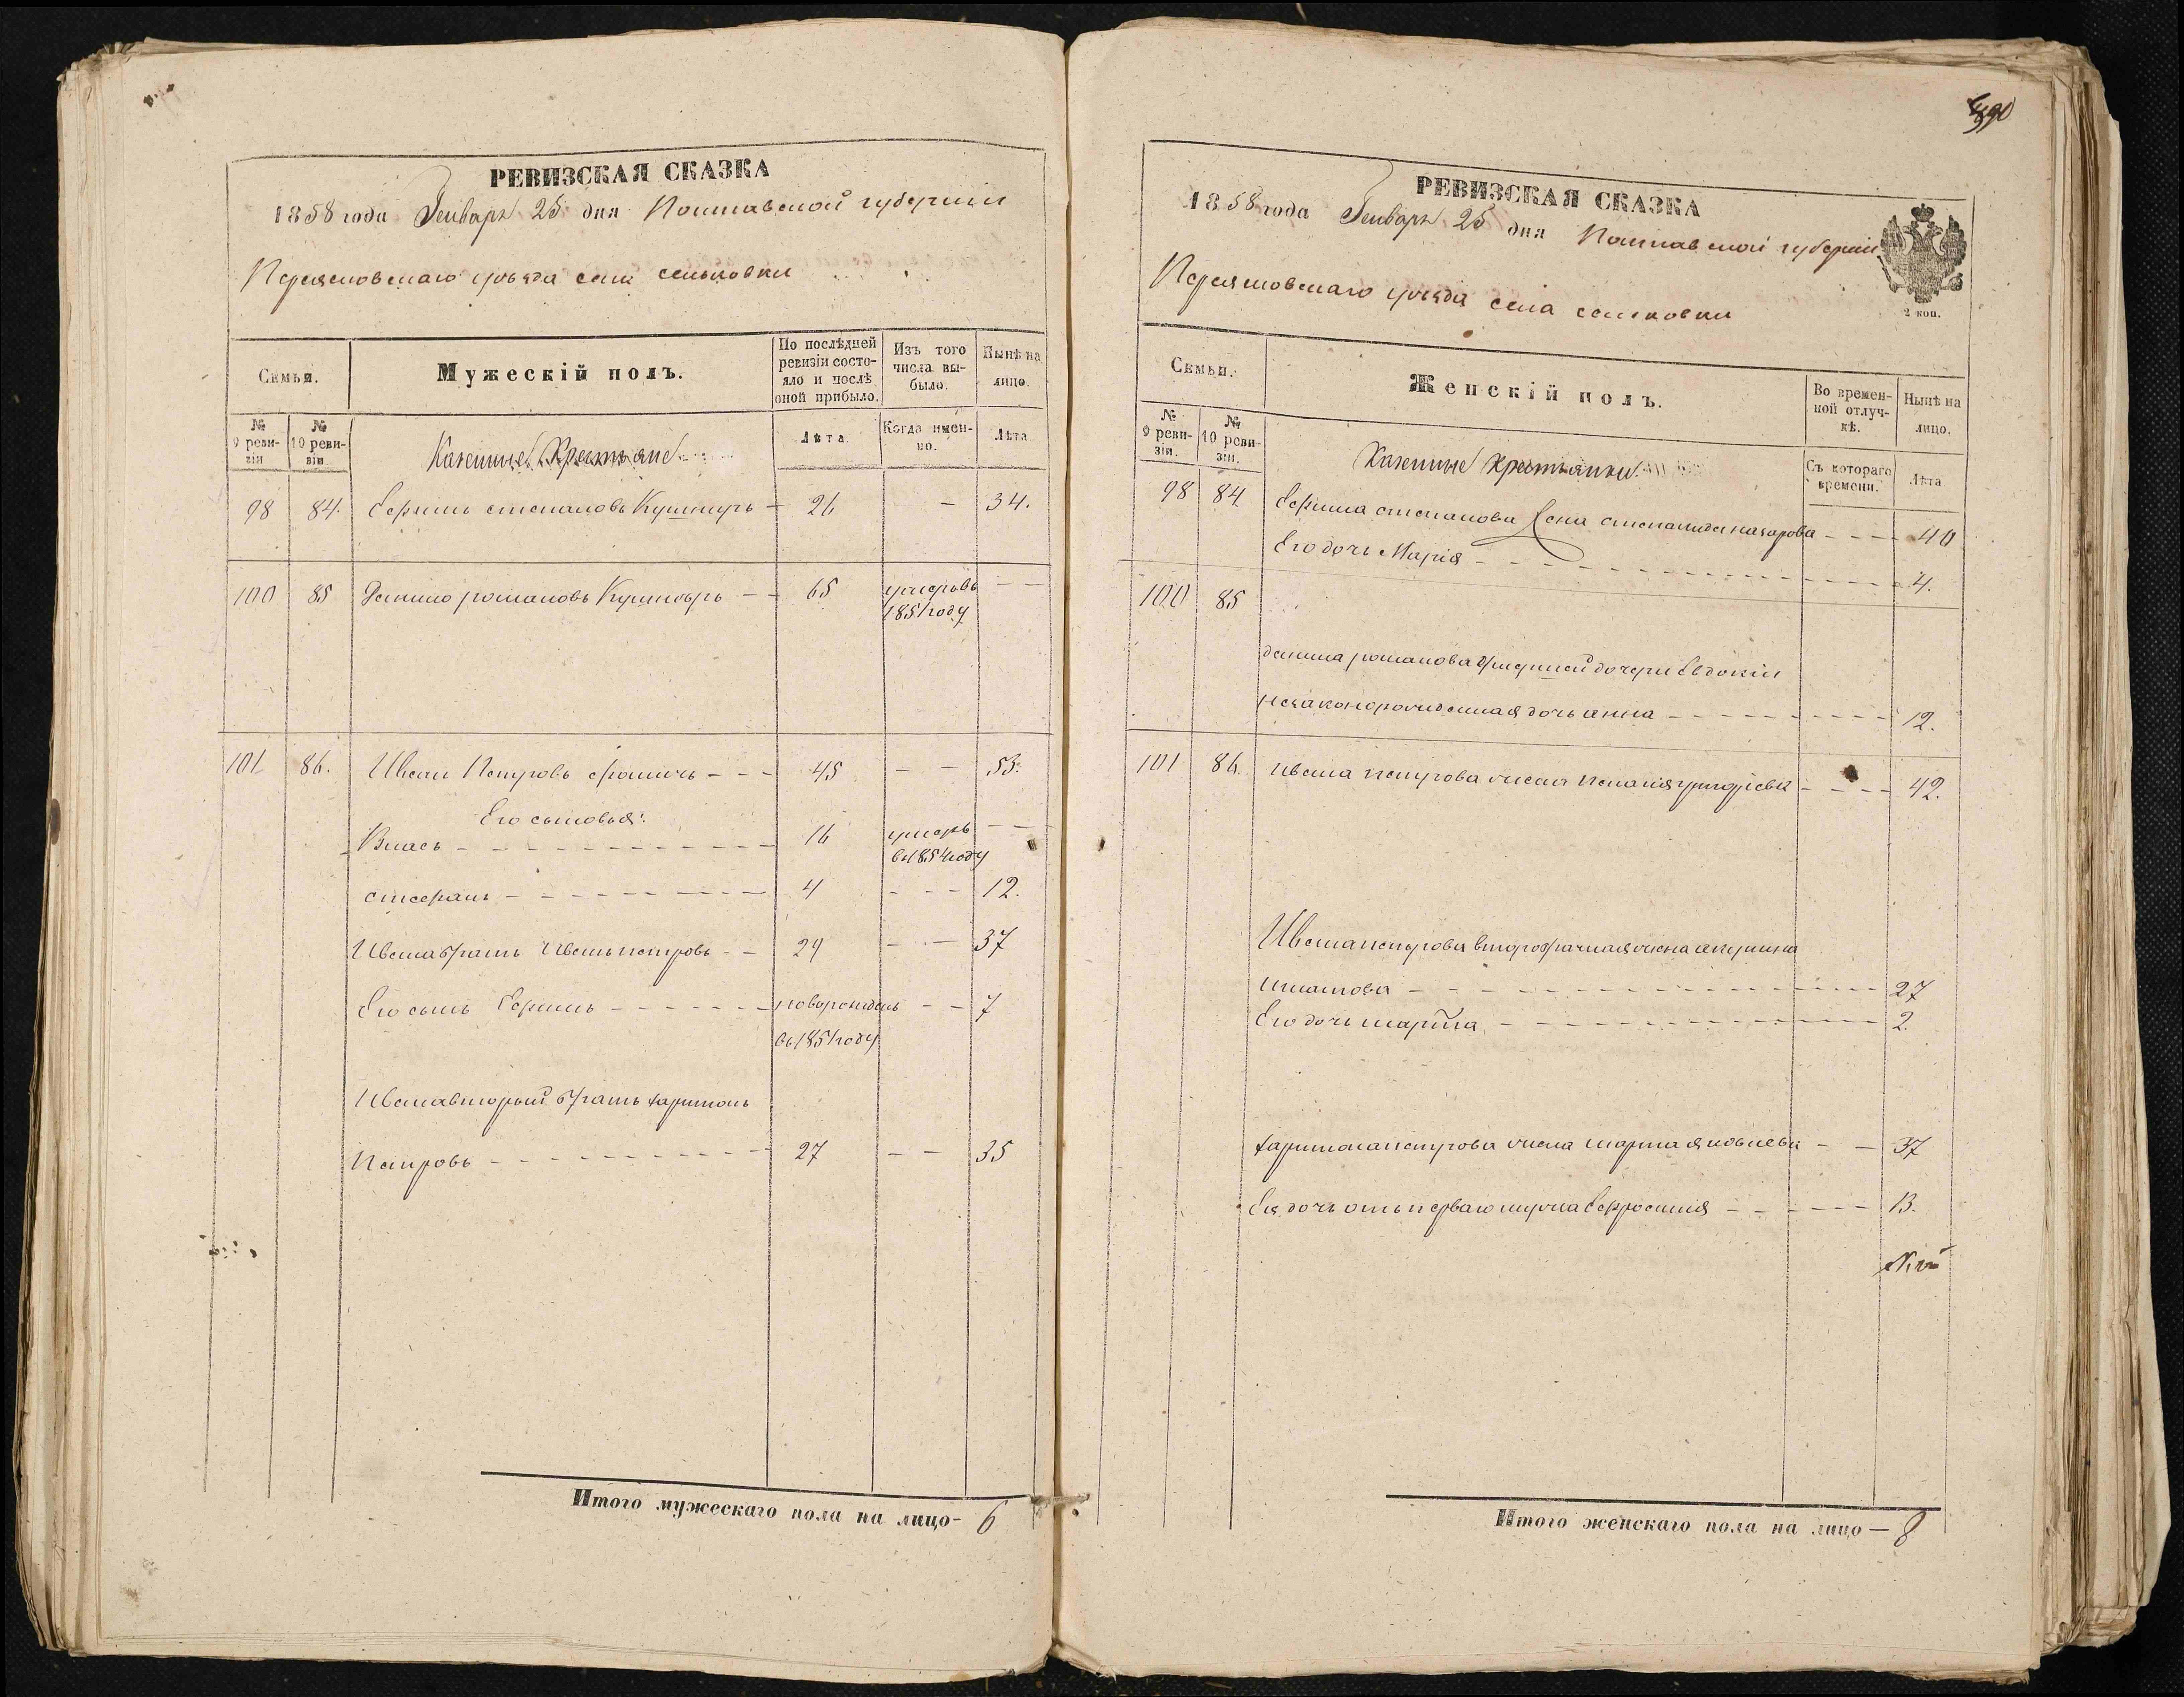 РЕВИЗСКАЯ СКАЗКА
1858 года Генваря 25 дня Полтавской губернии
Переяславскаго уезда села сеньковки
Семьи.
Мужескій полъ.
По послѣдней ревизіи состояло и послѣ оной прибыло.
Изъ того числа выбыло.
Нынѣ на лицо.
№ 9 ревизіи
№ 10 ревизіи
Казенные Крестьяне
Лѣта.
Когда именно.
Лѣта
98 84. Ефимъ степановъ 26 — 34.
100 85 Данило романовъ 65 умеръ въ — —
1851 году
101 86. Иванъ Петровъ 45 — — 53.
Его сыновья:
Власъ 16 умеръ — —
въ 1854 году
стефанъ 4 - - - 12.
Ивана братъ Иванъ петровъ 29 — — 37
Его сынъ Ефимъ новорожденъ — — 7
въ 1851 году
Ивана вторый братъ харитонъ
Петровъ 27 — — 35
Итого мужескаго пола на лицо - 6
РЕВИЗСКАЯ СКАЗКА
1858 года Генваря 25 дня Полтавской губернии
Переяславскаго уезда села сеньковки
2 коп.
Семьи.
Женскій полъ.
Во временной отлучкѣ.
Нынѣ на лицо.
№ 9 ревизіи.
№ 10 ревизіи.
Казенные крестьянки
Съ котораго времени.
Лѣта
98 84 Ефима степанова жена степанида назарова - - - 40
Его дочь Марія 4.
100 85
данила романова дочери Евдокіи
незаконорожденная дочь анна 12.
101 86. ивана петрова жена григоріева - - - 42.
Ивана петрова второбрачная жена акулина
27
Его дочь марѳа 2.
харитона петрова жена марѳа яковлева — — 37
Ея дочь отъ перваго мужа Ефросинія 13.
Итого женскаго пола на лицо — 8